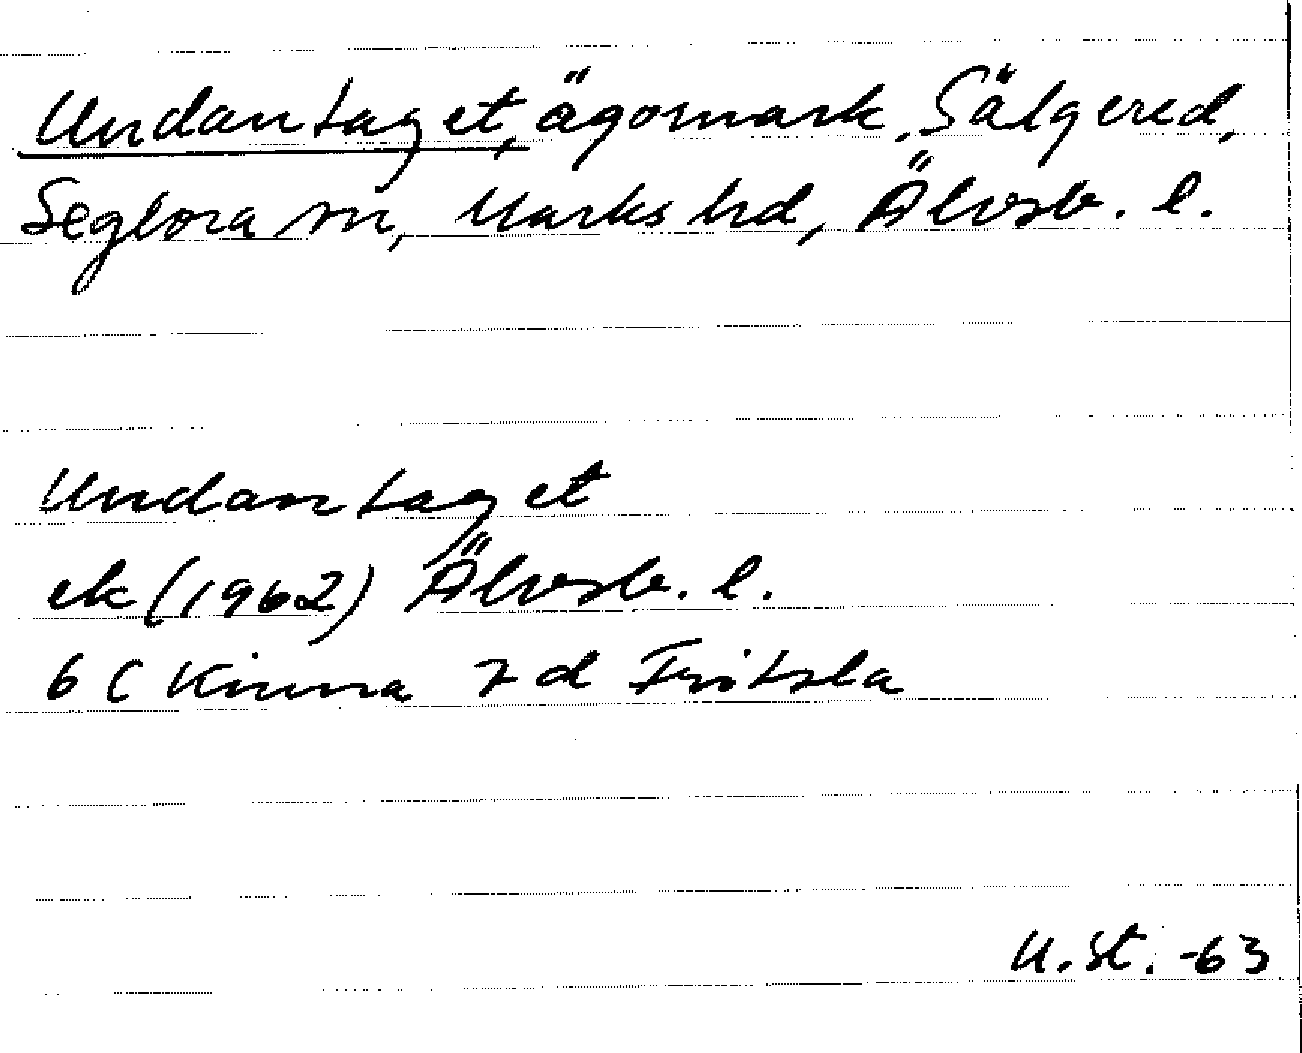 Undantaget, ägomark, Sälgered,
Seglora sn, Marks hd, Älvsb. l.
Undantaget
ek (1962) Älvsb. l.
6 C Kinna 7 d Fritsla
U. St. -63